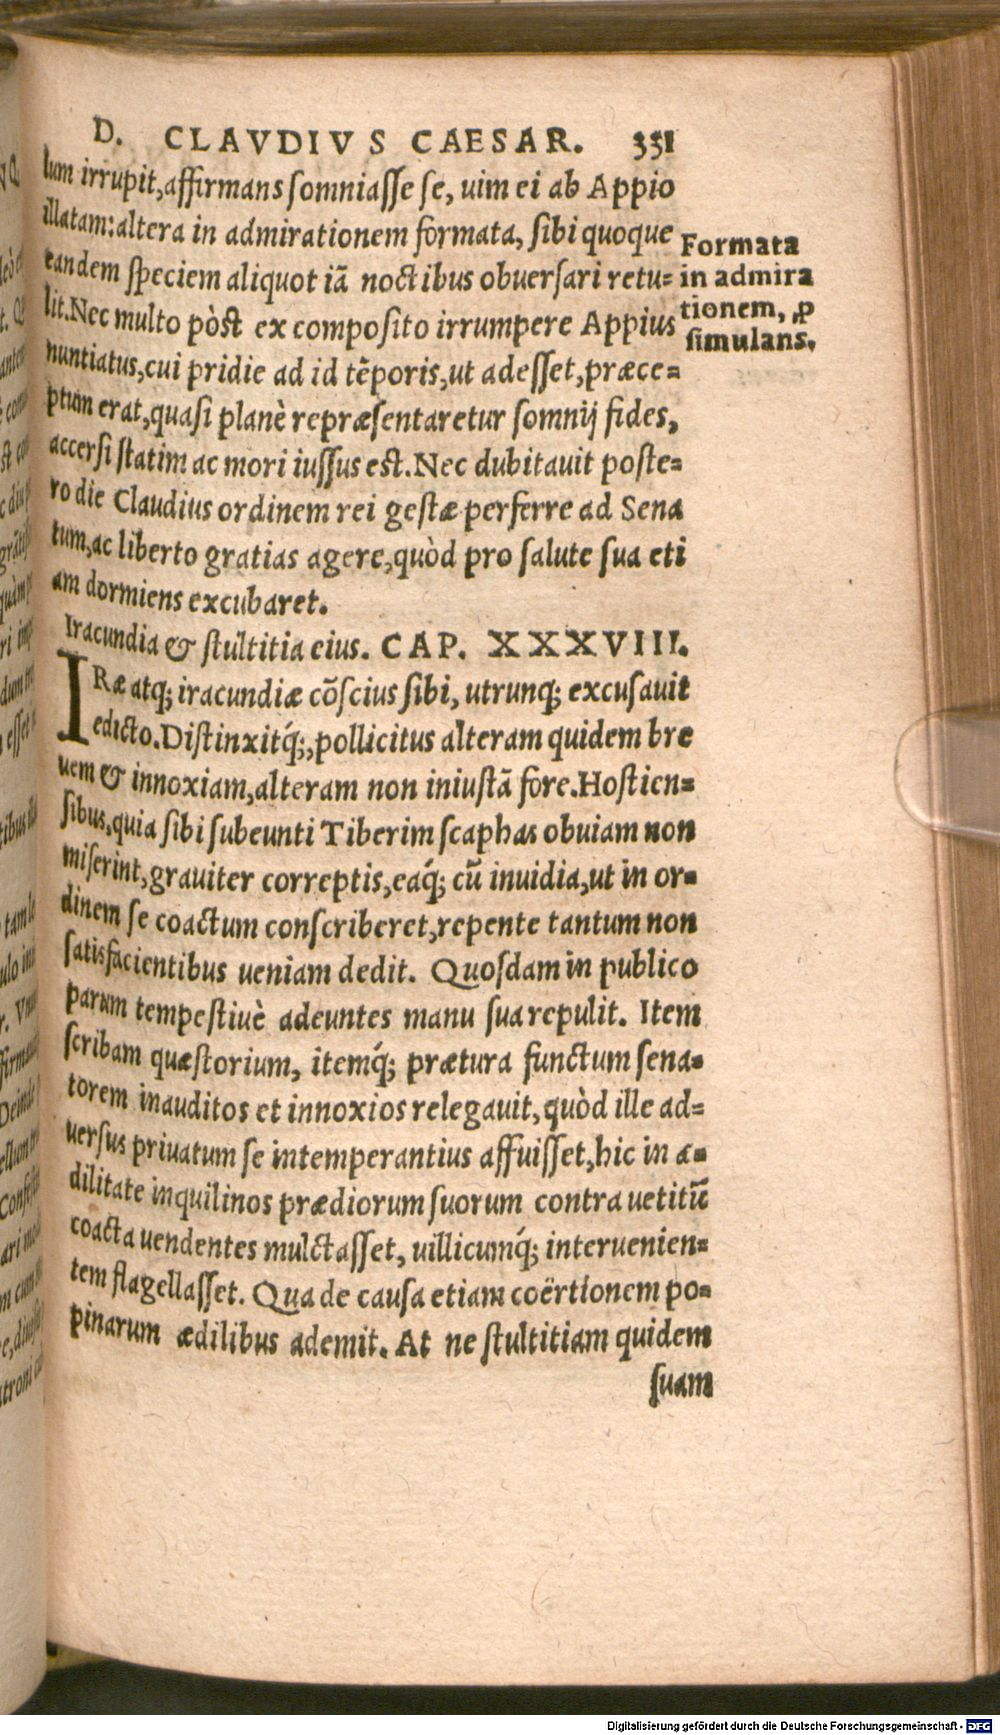 D. CLAVDIVS CAESAR. 331
lum irrupit, affirmans somniasse se, uim ei ab Appio
illatam: altera in admirationem formata, sibi quoque
eandem speciem aliquot iã noctibus obuersari retu=
lit. Nec multo pòst ex composito irrumpere Appius
nuntiatus, cui pridie ad id tẽporis, ut adesset, præce=
ptum erat, quasi planè repræsentaretur somnij fides,
accersi statim ac mori iussus est. Nec dubitauit poste=
ro die Claudius ordinem rei gestæ perferre ad Sena
tum, ac liberto gratias agere, quòd pro salute sua eti
am dormiens excubaret.
Formata
in admira
tionem, ꝓ
simulans.
Iracundia & stultitia eius. CAP. XXXVIII.
IRæ atq; iracundiæ cõscius sibi, utrunq; excusauit
edicto. Distinxitq́;, pollicitus alteram quidem bre
uem & innoxiam, alteram non iniustã fore. Hostien=
sibus, quia sibi subeunti Tiberim scaphas obuiam non
miserint, grauiter correptis, eaq́; cũ inuidia, ut in or=
dinem se coactum conscriberet, repente tantum non
satisfacientibus ueniam dedit. Quosdam in publico
parum tempestiuè adeuntes manu sua repulit. Item
scribam quæstorium, itemq́; prætura functum sena=
torem inauditos et innoxios relegauit, quòd ille ad=
uersus priuatum se intemperantius affuisset, hic in æ=
dilitate inquilinos prædiorum suorum contra uetitũ
coacta uendentes mulctasset, uillicumq́; interuenien=
tem flagellasset. Qua de causa etiam coërtionem po=
pinarum ædilibus ademit. At ne stultitiam quidem
suam
Digitalisierung gefördert durch die Deutsche Forschungsgemeinschaft - DFG